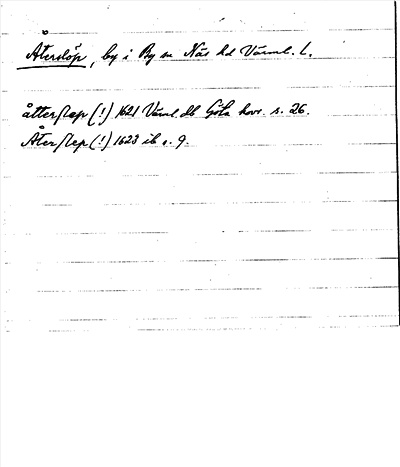 Återslöp, by i By sn Näs hd Värml. l.
åtterslæp (!) 1621 Värml. db Göta hovr. s. 26.
Återslep (!) 1623 ib s. 9.